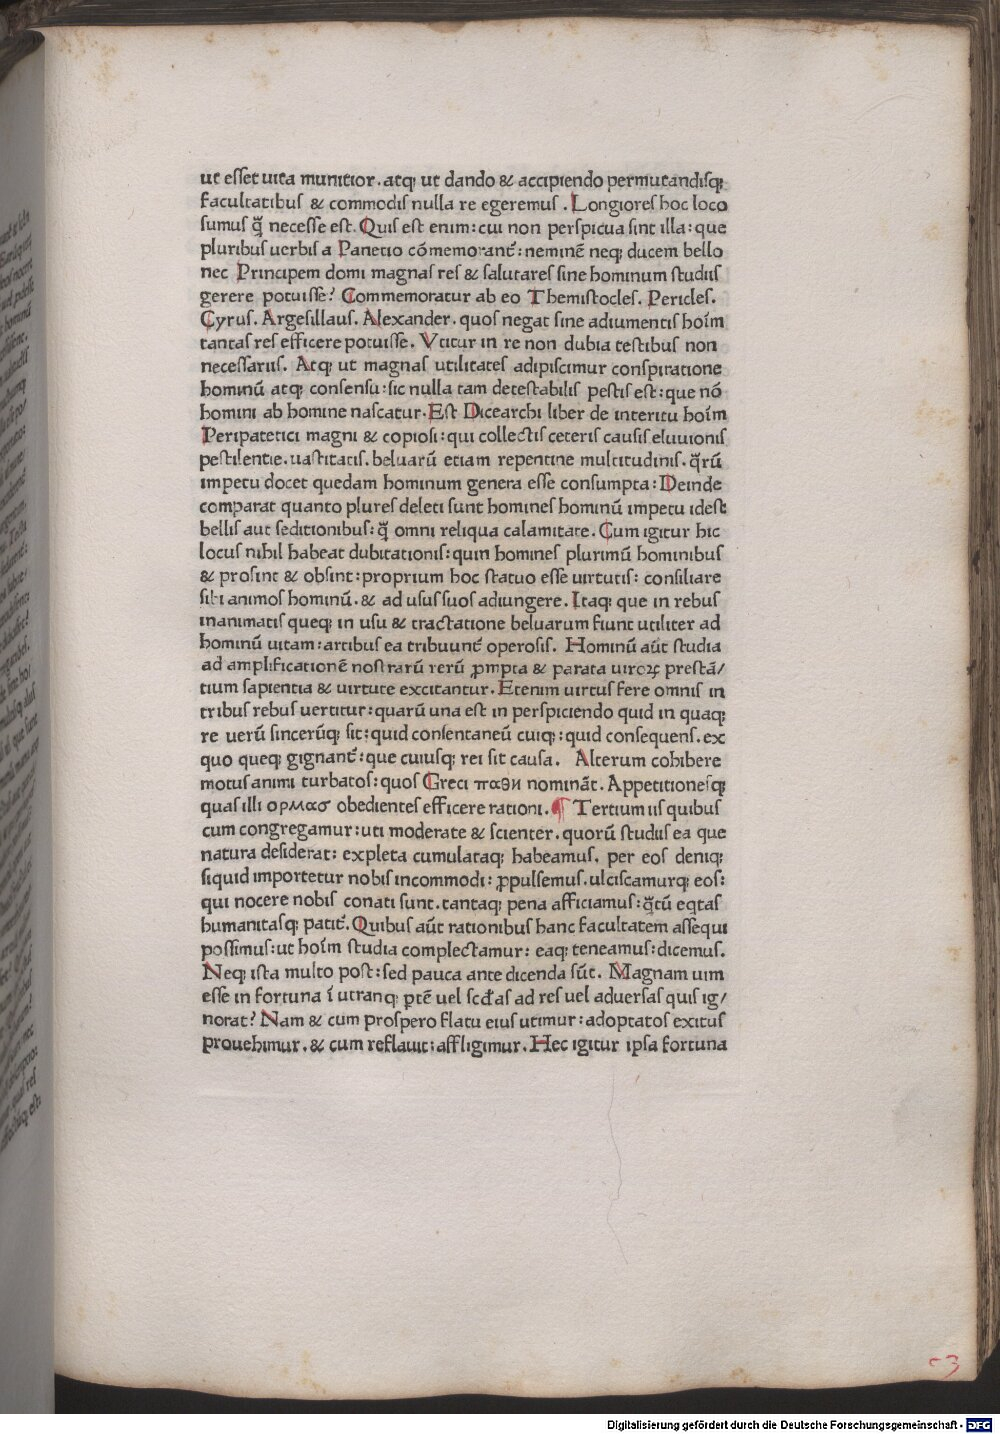 ut esset uita munitior. atq; ut dando & accipiendo permutandisq;
facultatibus & commodis nulla re egeremus. Longiores hoc loco
sumus q̃ necesse est. Quis est enim: cui non perspicua sint illa: que
pluribus uerbis a Panetio cōmemorant᷑: neminē neq; ducem bello
nec Principem domi magnas res & salutares sine hominum studiis
gerere potuisse? Commemoratur ab eo Themistocles. Pericles.
Cyrus. Argesillaus. Alexander. quos negat sine adiumentis hoīm
tantas res efficere potuisse. Vtitur in re non dubia testibus non
necessariis. Atq; ut magnas utilitates adipiscimur conspiratione
hominū atq; consensu: sic nulla tam detestabilis pestis est: que nō
homini ab homine nascatur. Est Dicearchi liber de interitu hoīm
Peripatetici magni & copiosi: qui collectis ceteris causis eluuionis
pestilentie. uastitatis. beluarū etiam repentine multitudinis. q̃rū
impetu docet quedam hominum genera esse consumpta: Deinde
comparat quanto plures deleti sunt homines hominū impetu idest
bellis aut seditionibus: q̃ omni reliqua calamitate. Cum igitur hic
locus nihil habeat dubitationis: quin homines plurimū hominibus
& prosint & obsint: proprium hoc statuo esse uirtutis: consiliare
sibi animos hominū. & ad usus suos adiungere. Itaq; que in rebus
inanimatis queq; in usu & tractatione beluarum fiunt utiliter ad
hominū uitam: artibus ea tribuunt᷑ operosis. Hominū aūt studia
ad amplificationē nostrarū rerū ꝓmpta & parata uiroꝝ prestā/
tium sapientia & uirtute excitantur. Etenim uirtus fere omnis in
tribus rebus uertitur: quarū una est in perspiciendo quid in quaq;
re uerū sincerūq; sit: quid consentaneū cuiq;: quid consequens. ex
quo queq; gignant᷑: que cuiusq; rei sit causa. Alterum cohibere
motus animi turbatos: quos Greci παθη nomināt. Appetitionesq;
quas illi ορμασ obedientes efficere rationi. ¶ Tertium iis quibus
cum congregamur: uti moderate & scienter. quorū studiis ea que
natura desiderat: expleta cumulataq; habeamus. per eos deniq;
siquid importetur nobis incommodi: ꝓpulsemus. ulciscamurq; eos:
qui nocere nobis conati sunt. tantaq; pena afficiamus: q̃tū eq̃tas
humanitasq; patit᷑. Quibus aūt rationibus hanc facultatem assequi
possimus: ut hoīm studia complectamur: eaq; teneamus: dicemus.
Neq; ista multo post: sed pauca ante dicenda sūt. Magnam uim
esse in fortuna ī utranq; ꝑtē uel scđas ad res uel aduersas quis ig/
norat? Nam & cum prospero flatu eius utimur: adoptatos exitus
prouehimur. & cum reflauit: affligimur. Hec igitur ipsa fortuna
Digitalisierung gefördert durch die Deutsche Forschungsgemeinschaft - DFG